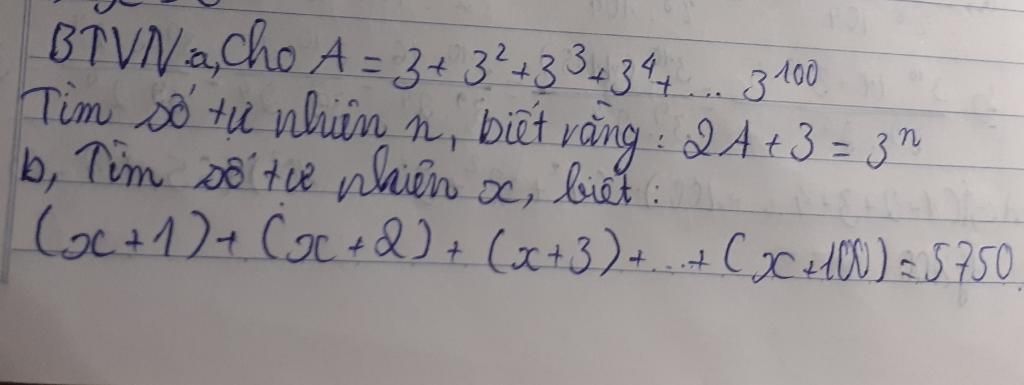 BTVN: a, Cho A = 3 + 3² + 3³ + 3⁴ + ... 3¹⁰⁰
Tìm số tự nhiên n, biết rằng: 2A + 3 = 3ⁿ
b, Tìm số tự nhiên x, biết:
(x+1) + (x+2) + (x+3) + ... + (x+100) = 5750